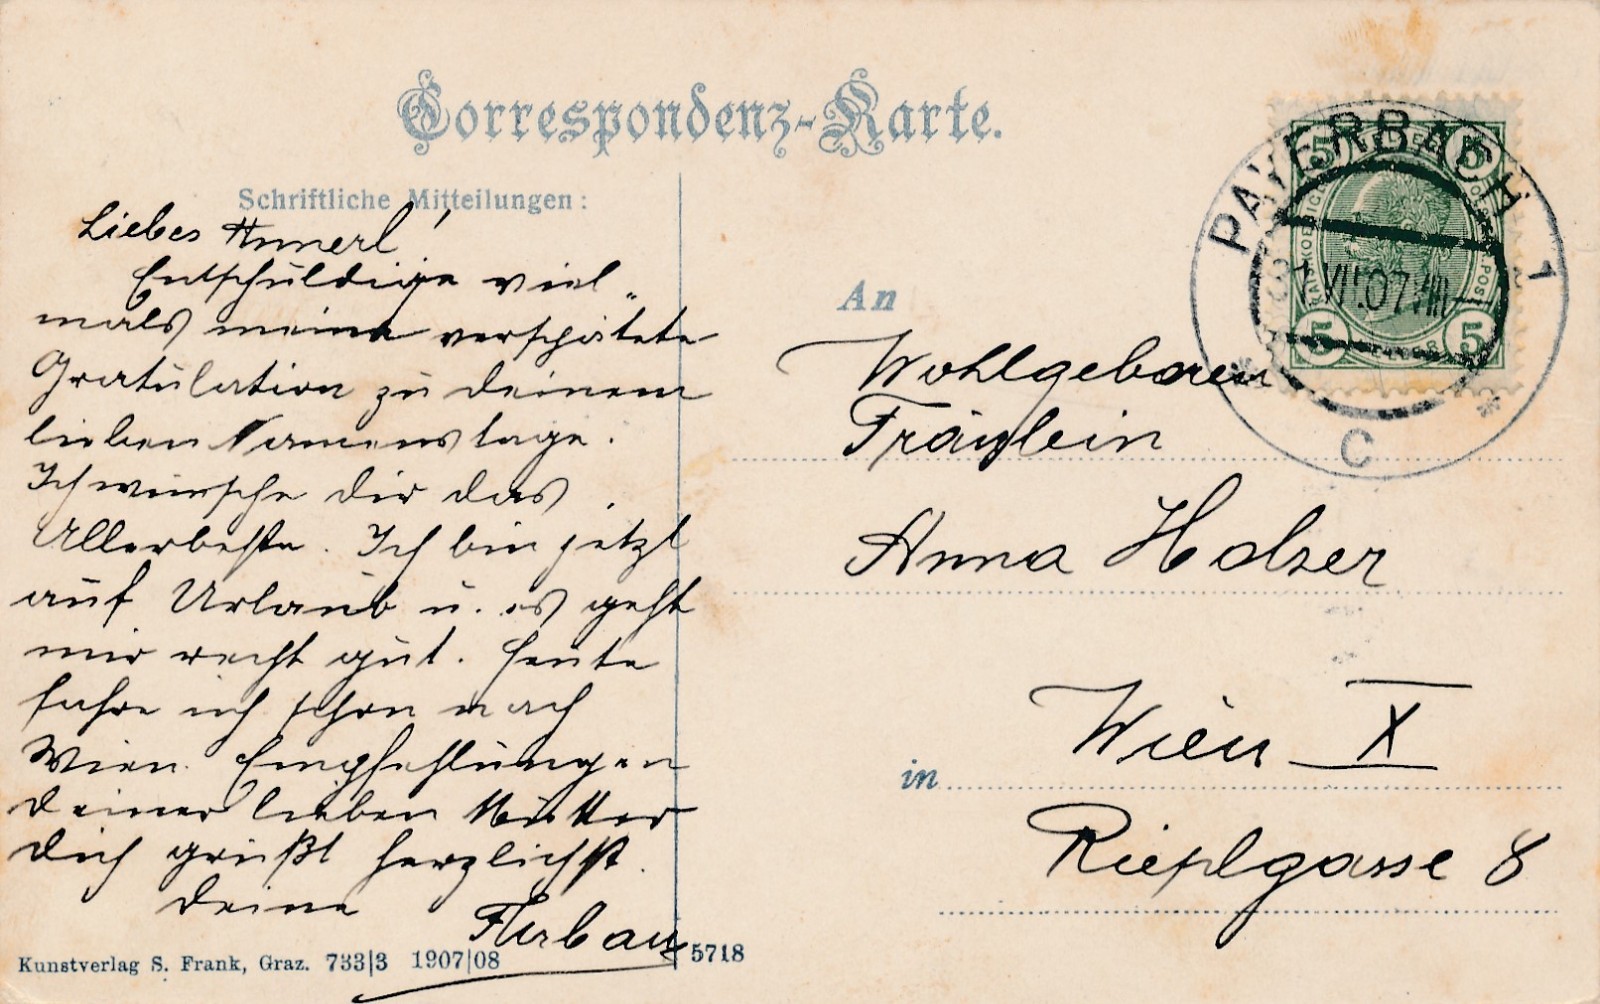 Correspondenz-Karte.
Schriftliche Mitteilungen:
Liebes Annerl!
Entschuldige viel-
mals meine verspätete
Gratulation zu deinem
lieben Namenstage.
Ich wünsche dir das
Allerbeste. Ich bin jetzt
auf Urlaub u. es geht
mir recht gut. Heute
fahre ich schon nach
Wien. Empfehlungen
deiner lieben Mutter
dich grüßt herzlichst.
deine
Kunstverlag S. Frank, Graz. 733|3 1907|08
5718
PAYERBACH 1
VII 07
C
5 5
5 5
An
Wohlgeboren
Fräulein
Anna Holzer
in Wien X
Rieplgasse 8